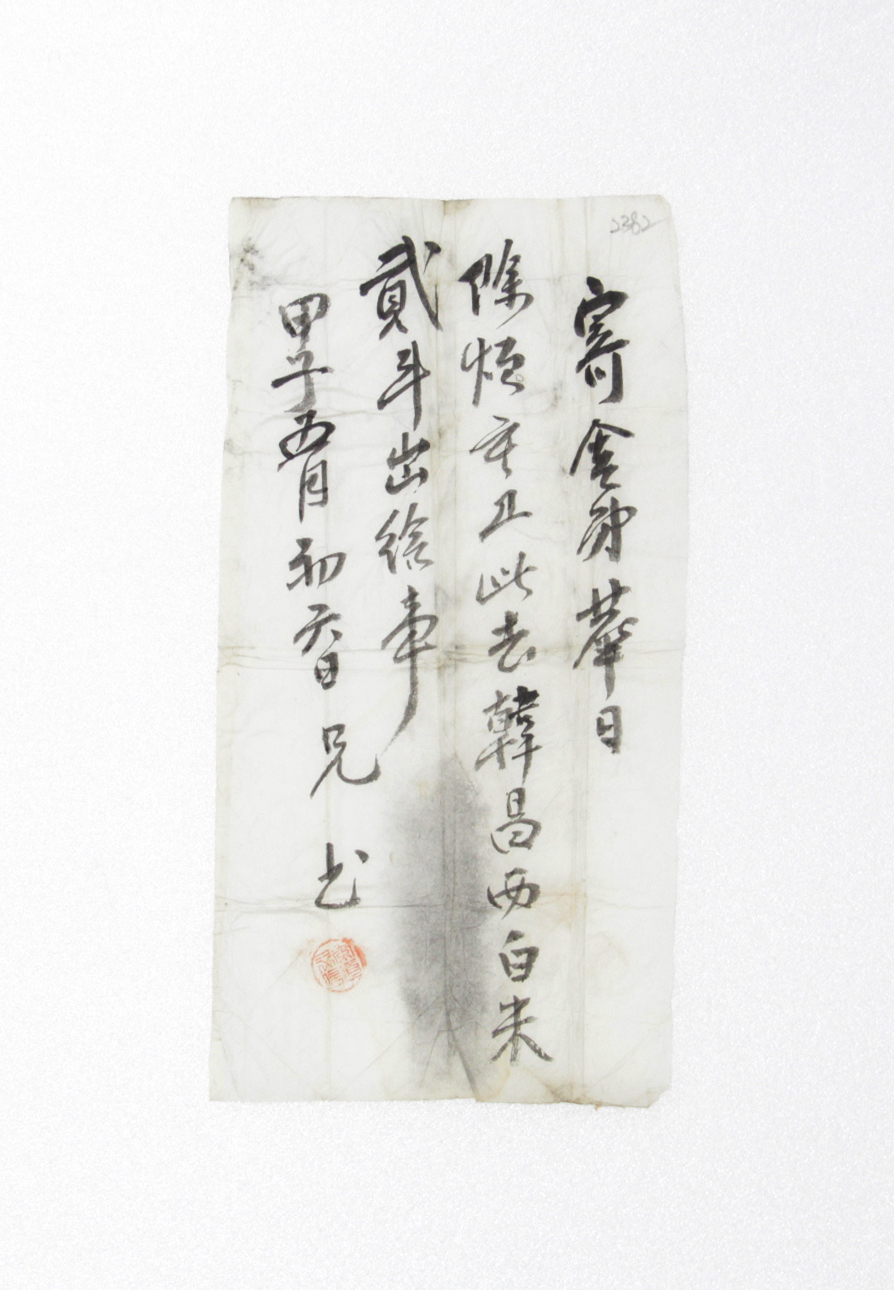 2382
寄舍弟華日
除煩고且此去韓昌西白米
貳斗出給事
甲子五月初六日 兄 書